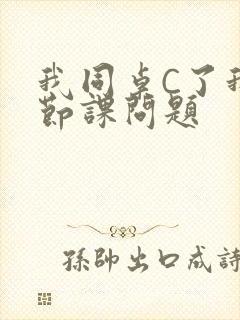 我同桌C了我
节課問題
孫帥出口成詩